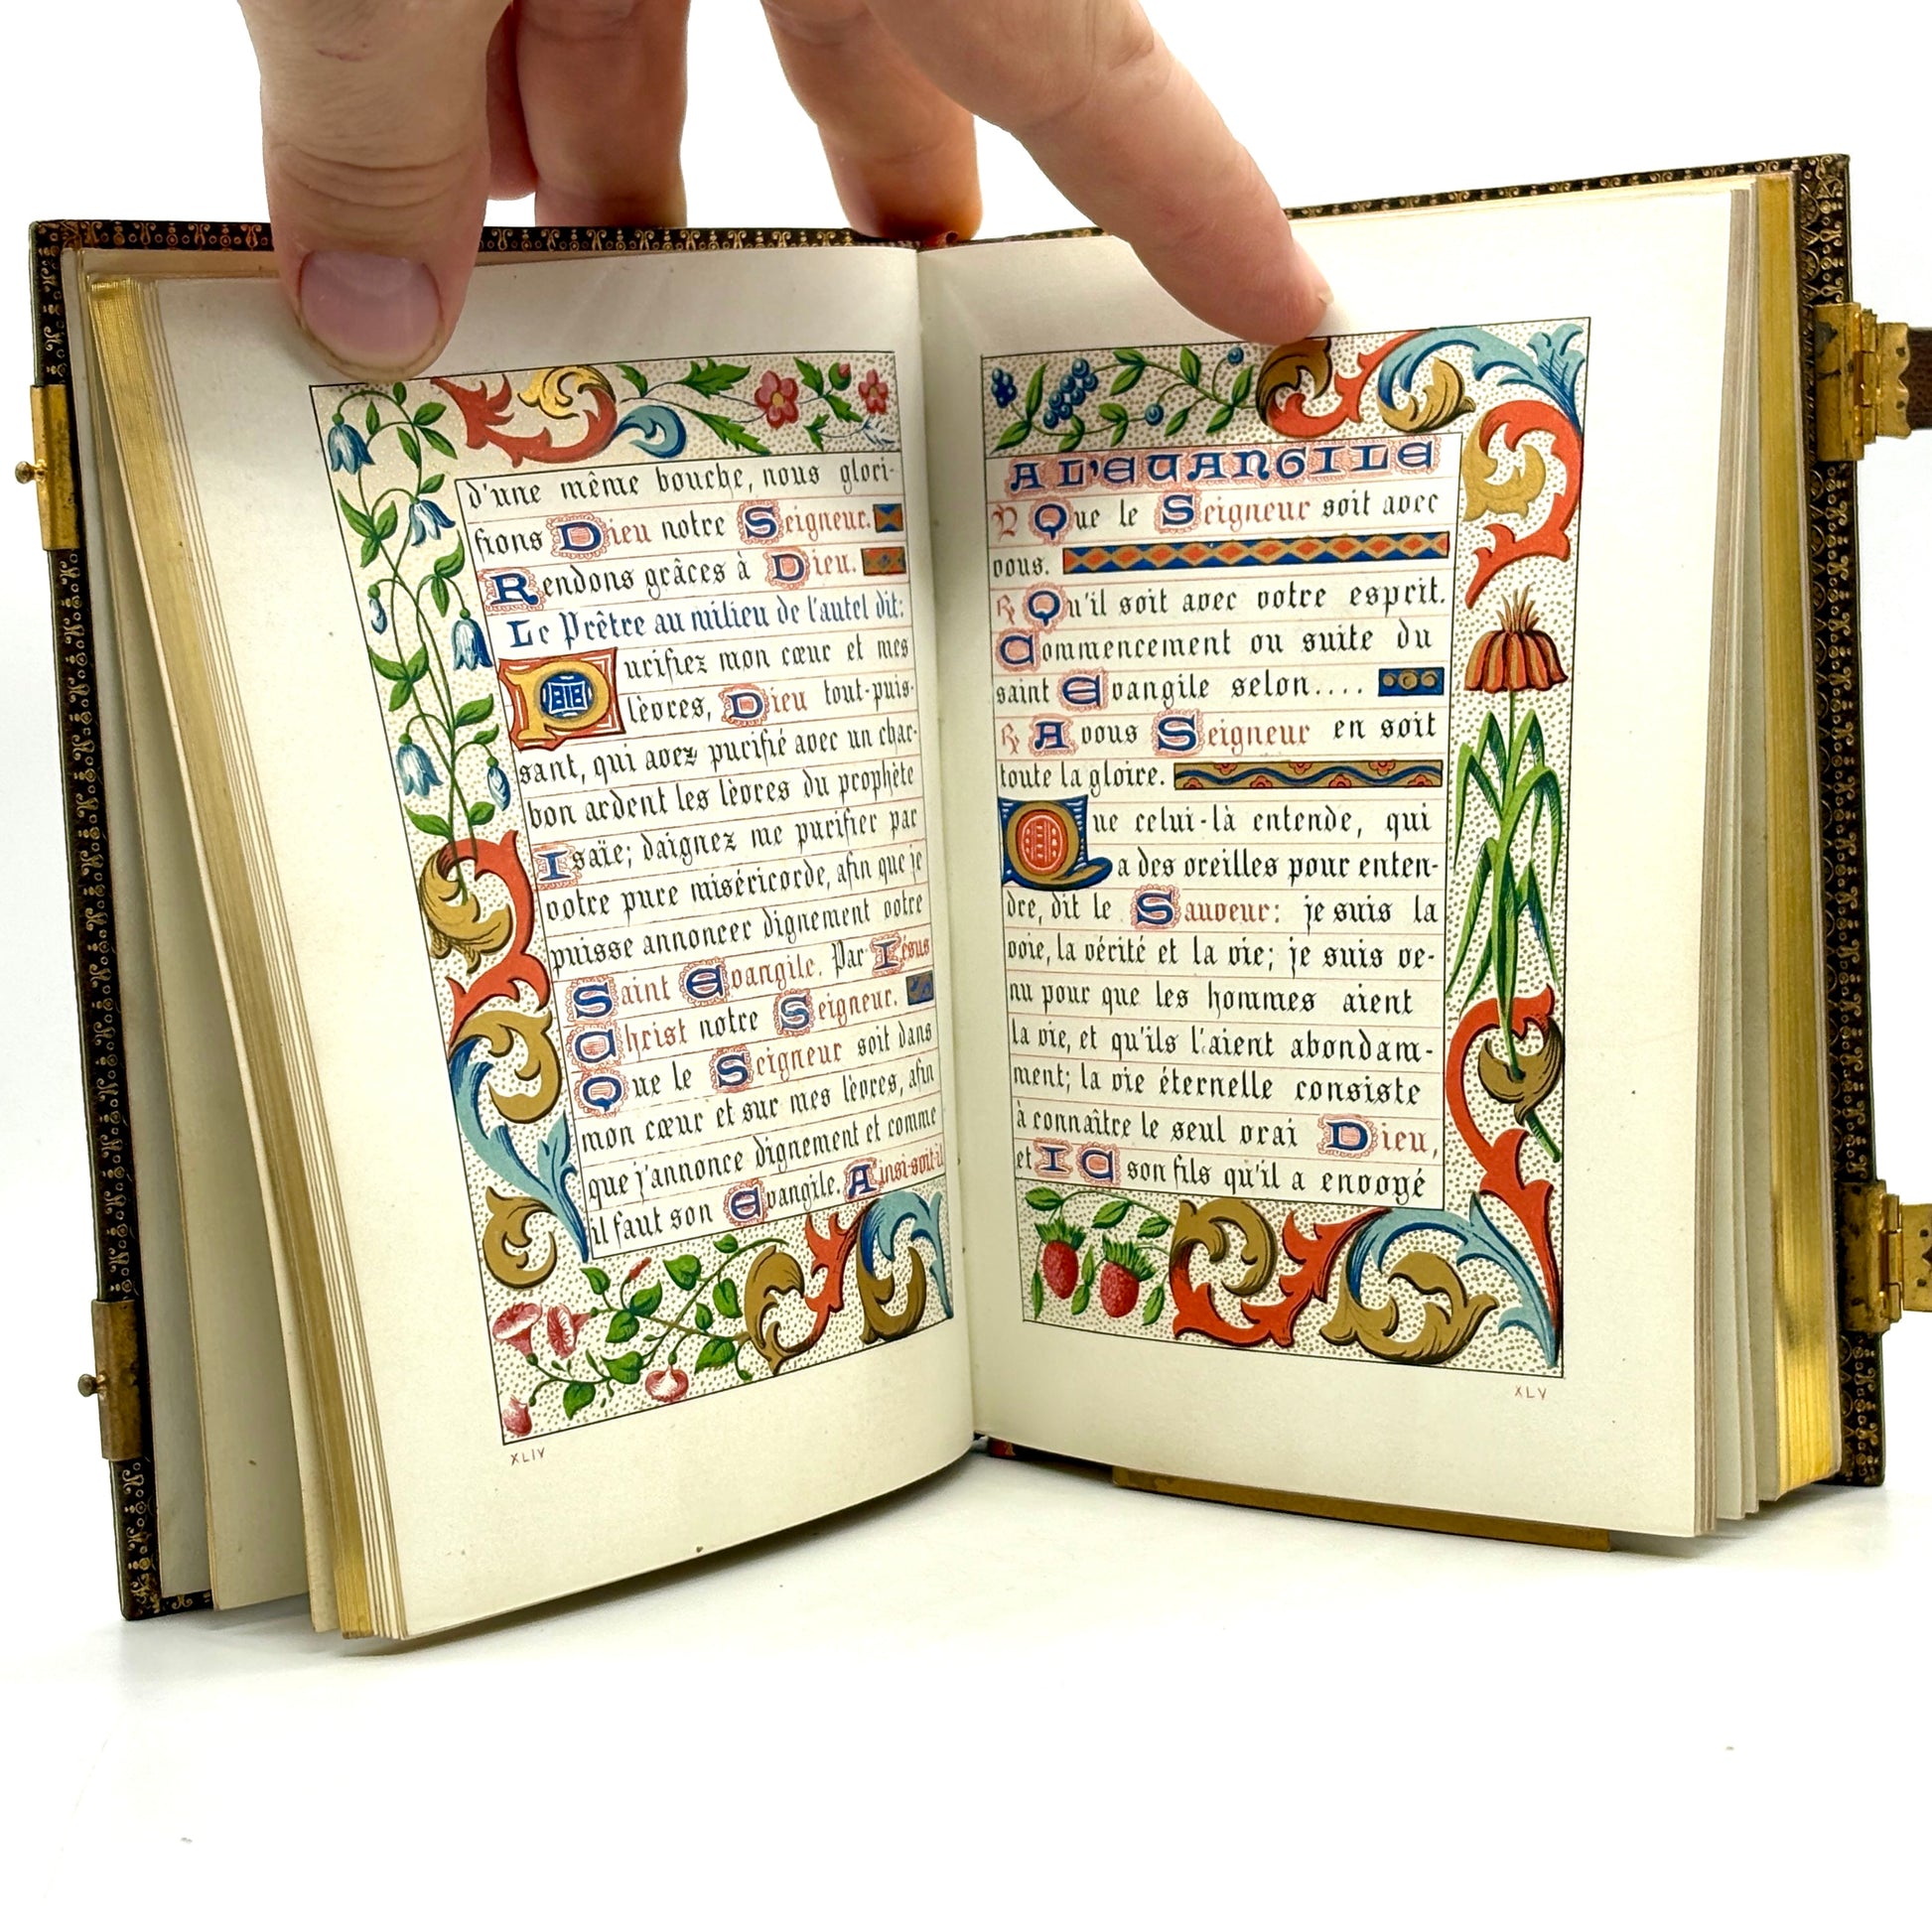 d'une même bouche, nous glori-
fions Dieu notre Seigneur.
Rendons grâces à Dieu.
Le Prêtre au milieu de l'autel dit:
Purifiez mon cœur et mes
lèvres, Dieu tout-puis-
sant, qui avez purifié avec un char-
bon ardent les lèvres du prophète
Isaïe; daignez me purifier par
votre pure miséricorde, afin que je
puisse annoncer dignement votre
Saint Evangile. Par Iésus
Christ notre Seigneur.
Que le Seigneur soit dans
mon cœur et sur mes lèvres, afin
que j'annonce dignement et comme
il faut son Evangile. Ainsi-soit-il
XLIV
A L'EVANGILE
℣ Que le Seigneur soit avec
vous.
℟ Qu'il soit avec votre esprit.
Commencement ou suite du
saint Evangile selon....
℟ A vous Seigneur en soit
toute la gloire.
Que celui-là entende, qui
a des oreilles pour enten-
dre, dit le Sauveur: je suis la
voie, la vérité et la vie; je suis ve-
nu pour que les hommes aient
la vie, et qu'ils l'aient abondam-
ment; la vie éternelle consiste
à connaître le seul vrai Dieu,
et I C son fils qu'il a envoyé
XLV